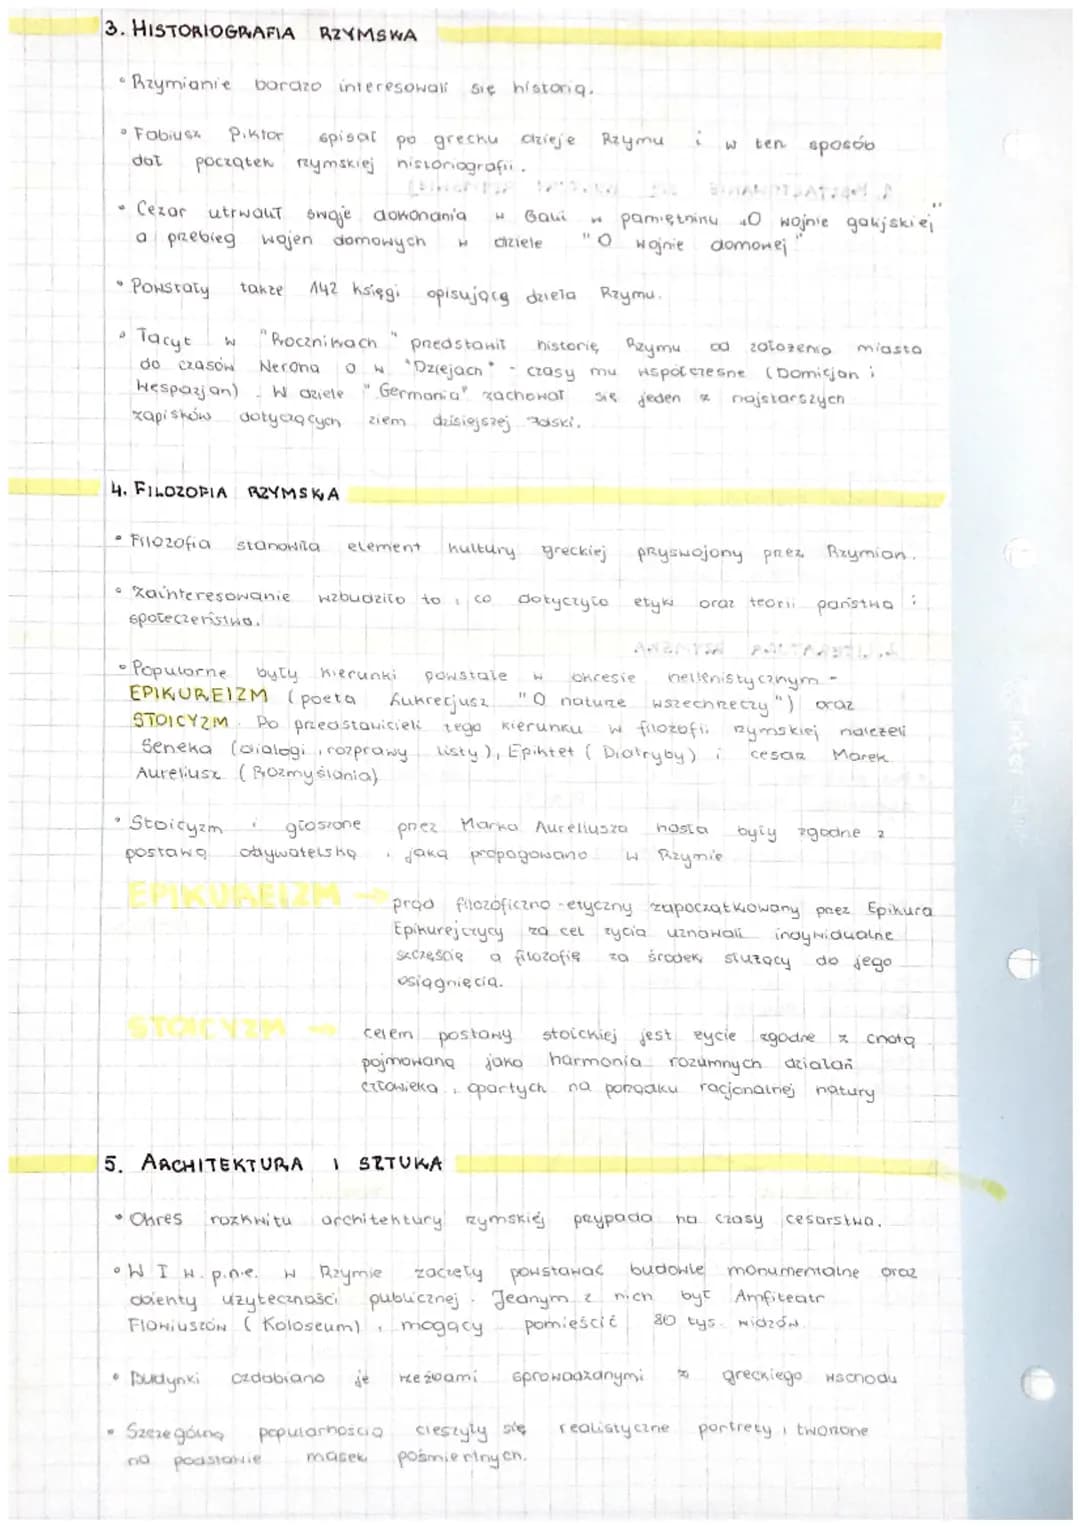 3. HISTORIOGRAFIA RZYMSKA
• Rzymianie bardzo interesowali się historią.
• Fabiusz Piktor spisał po grecku dzieje Rzymu i w ten sposób
dał początek rzymskiej historiografii.
• Cezar utrwalił swoje dokonania w Galii w pamiętniku „O wojnie galijskiej"
a przebieg wojen domowych w dziele "O wojnie domowej"
• Powstały także 142 księgi opisującą dzieła Rzymu.
• Tacyt w "Rocznikach" przedstawił historię Rzymu od założenia miasta
do czasów Nerona a w "Dziejach" - czasy mu współczesne (Domicjan i
Wespazjan). W dziele "Germania" zachował się jeden z najstarszych
zapisków dotyczących ziem dzisiejszej Polski.
4. FILOZOFIA RZYMSKA
• Filozofia stanowiła element kultury greckiej pryswojony przez Rzymian.
• Zainteresowanie wzbudziło to, co dotyczyło etyki oraz teorii państwa i
społeczeństwa.
• Popularne były kierunki powstałe w okresie hellenistycznym -
EPIKUREIZM (poeta Lukrecjusz "O naturze wszechrzeczy") oraz
STOICYZM. Do przedstawicieli tego kierunku w filozofii rzymskiej należeli
Seneka (dialogi, rozprawy listy), Epiktet (Diatryby) i cesarz Marek
Aureliusz (Rozmyślania)
• Stoicyzm i głoszone przez Marka Aureliusza hasła były zgodne z
postawą obywatelską, jaką propagowano w Rzymie
EPIKUREIZM → prąd filozoficzno-etyczny zapoczątkowany przez Epikura
Epikurejczycy za cel życia uznawali indywidualne
szczęście a filozofię za środek służący do jego
osiągnięcia.
STOICYZM → celem postawy stoickiej jest życie zgodne z cnotą
pojmowaną jako harmonia rozumnych działań
człowieka, opartych na porządku racjonalnej natury
5. ARCHITEKTURA I SZTUKA
• Okres rozkwitu architektury rzymskiej przypada na czasy cesarstwa.
• W I w. p.n.e. w Rzymie zaczęły powstawać budowle monumentalne oraz
obienty użyteczności publicznej. Jednym z nich był Amfiteatr
Flawiuszów (Koloseum), mogący pomieścić 80 tys. widzów.
• Budynki ozdabiano je rzeźbami sprowadzanymi z greckiego wschodu
• Szczególną popularnością cieszyły się realistyczne portrety, tworzone
na podstawie masek pośmiertnych.